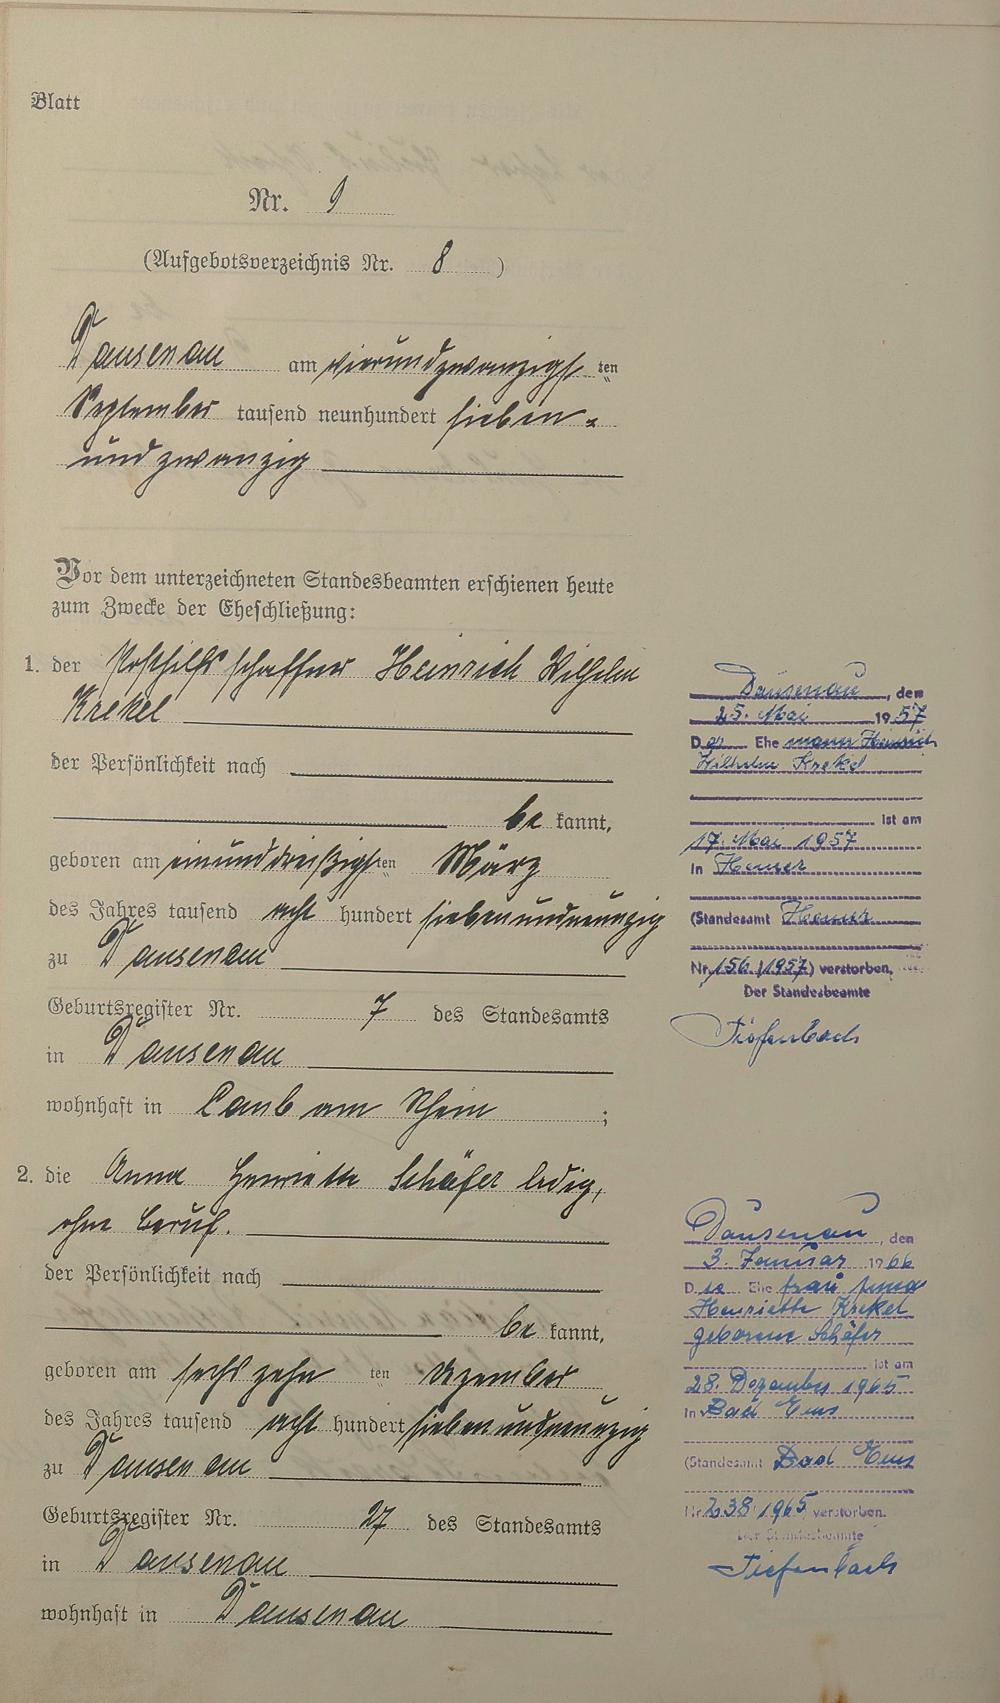 Blatt
Nr. 9
(Aufgebotsverzeichnis Nr. 8 )
Dausenau am vierundzwanzigst ten
September tausend neunhundert sieben-
undzwanzig
Vor dem unterzeichneten Standesbeamten erschienen heute
zum Zwecke der Eheschließung:
1. der Posthilfsschaffner Heinrich Wilhelm
Krekel
der Persönlichkeit nach
be kannt,
geboren am einunddreißigst ten März
des Jahres tausend acht hundert siebenundneunzig
zu Dausenau
Geburtsregister Nr. 7 des Standesamts
in Dausenau
wohnhaft in Caub am Rhein ;
2. die Anna Henriette Schäfer ledig,
ohne Beruf.
der Persönlichkeit nach
be kannt,
geboren am sechszehn ten Dezember
des Jahres tausend acht hundert siebenundneunzig
zu Dausenau
Geburtsregister Nr. 27 des Standesamts
in Dausenau
wohnhaft in Dausenau
Dausenau, den
25. Mai 1957
Der Ehe mann Heinrich
Wilhelm Krekel
ist am
17. Mai 1957
in Hemer
(Standesamt Hemer
Nr. 156/1957) verstorben.
Der Standesbeamte
Tiefenbach
Dausenau, den
3. Januar 1966
Die Ehe frau Anna
Henriette Krekel
geborene Schäfer
ist am
28. Dezember 1965
in Bad Ems
(Standesamt Bad Ems
Nr. 238/1965 verstorben.
Der Standesbeamte
Tiefenbach